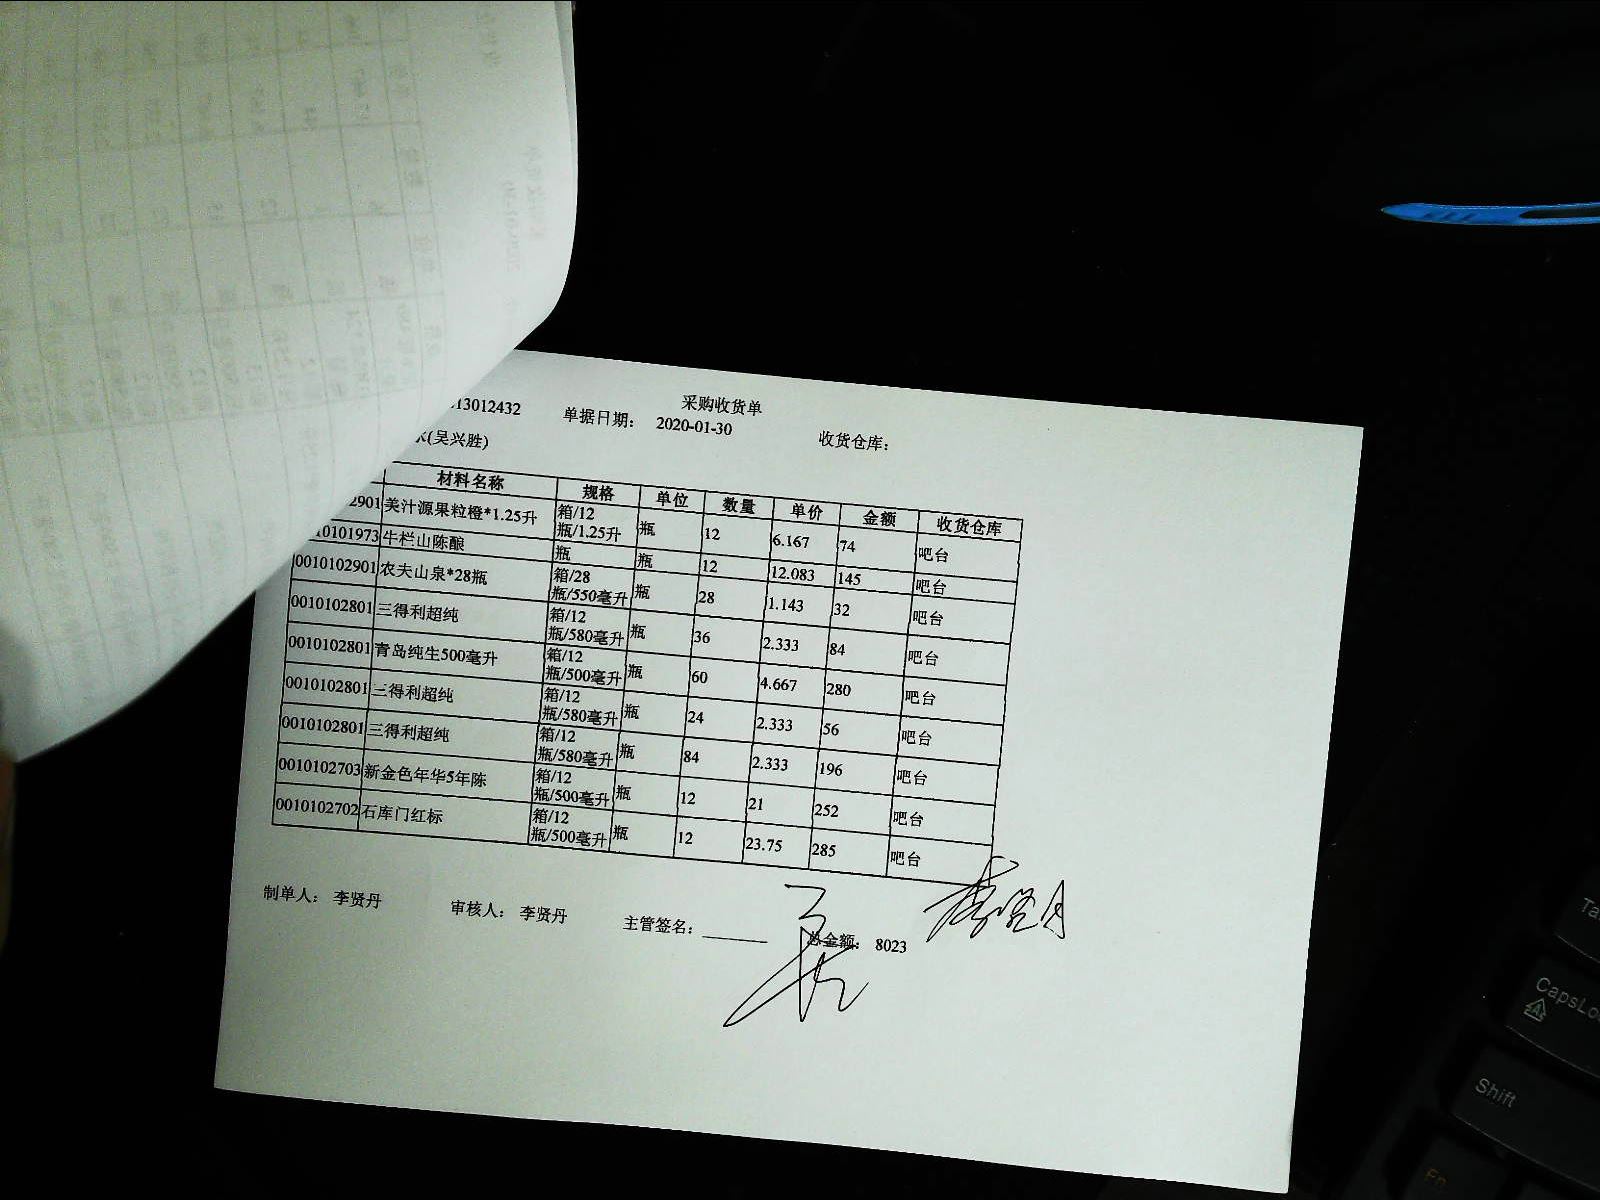 采购收货单
13012432 单据日期: 2020-01-30 收货仓库:
(吴兴胜)
材料名称 规格 单位 数量 单价 金额 收货仓库
2901 美汁源果粒橙*1.25升 箱/12瓶/1.25升 瓶 12 6.167 74 吧台
10101973 牛栏山陈酿 瓶 瓶 12 12.083 145 吧台
0010102901 农夫山泉*28瓶 箱/28瓶/550毫升 瓶 28 1.143 32 吧台
0010102801 三得利超纯 箱/12瓶/580毫升 瓶 36 2.333 84 吧台
0010102801 青岛纯生500毫升 箱/12瓶/500毫升 瓶 60 4.667 280 吧台
0010102801 三得利超纯 箱/12瓶/580毫升 瓶 24 2.333 56 吧台
0010102801 三得利超纯 箱/12瓶/580毫升 瓶 84 2.333 196 吧台
0010102703 新金色年华5年陈 箱/12瓶/500毫升 瓶 12 21 252 吧台
0010102702 石库门红标 箱/12瓶/500毫升 瓶 12 23.75 285 吧台
制单人: 李贤丹 审核人: 李贤丹 主管签名: 总金额: 8023
CapsLo
Shift
Fn